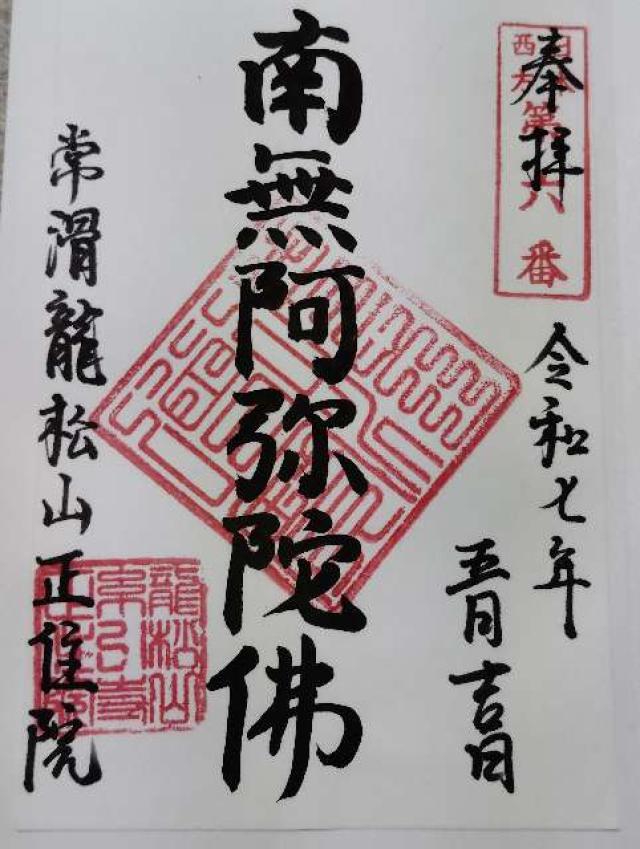 奉拝
第六番
令和七年
五月吉日
南無阿弥陀佛
常滑龍松山正住院
龍松山